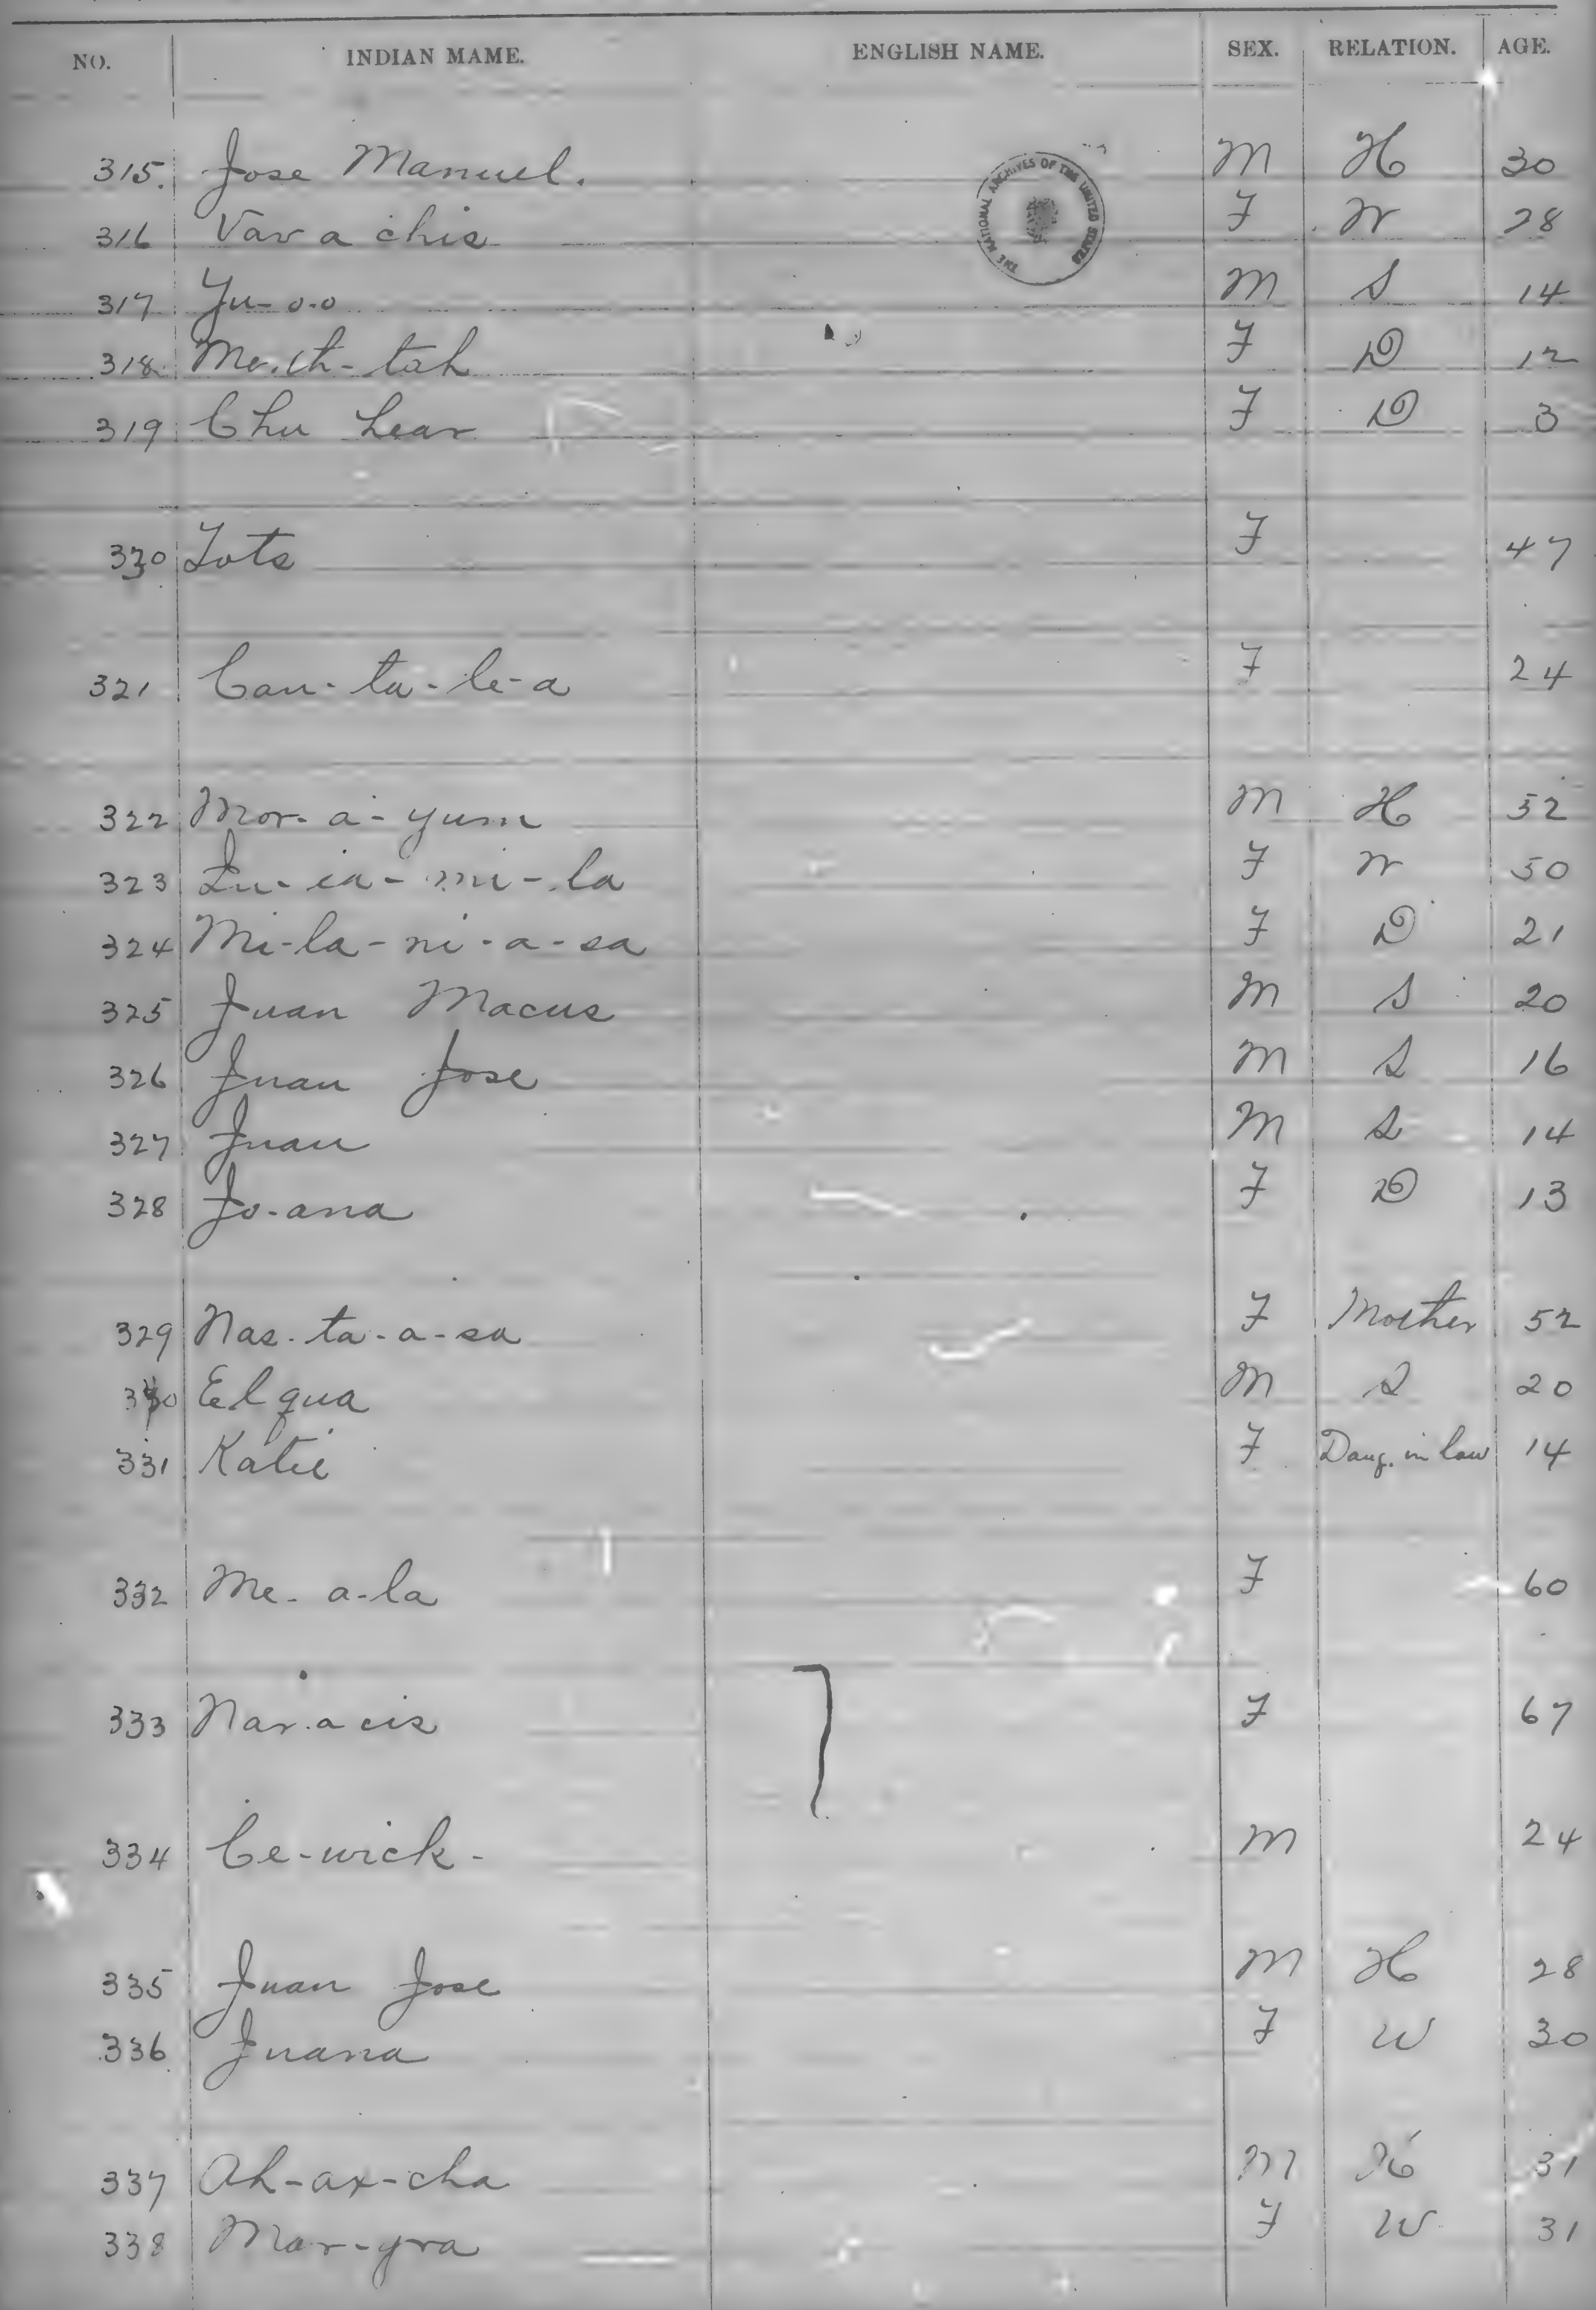 NO. INDIAN MAME. ENGLISH NAME. SEX. RELATION. AGE.
THE NATIONAL ARCHIVES OF THE UNITED STATES
315. Jose Manuel. M H 30
316 Vav a chis F W 28
317 Yu-o-o M S 14
318 F D 12
319 Chu Lear F D 3
330 Lots F 47
321 Can-ta-le-a F 24
322 Mor-a-yum M H 52
323 Lu-ia-mi-la F W 50
324 Mi-la-ni-a-sa F D 21
325 Juan Macus M S 20
326 Juan Jose M S 16
327 Juan M S 14
328 Jo-ana F D 13
329 Nas-ta-a-sa F Mother 52
330 Elqua M S 20
331 Katie F Daug. in law 14
332 Me-a-la F 60
333 Nar.a cis F 67
334 Ce-wick- M 24
335 Juan Jose M H 28
336 Juana F W 30
337 Ah-ax-cha M H 31
338 Mar-gra F W 31